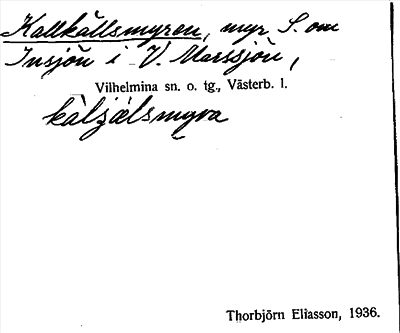 Kallkällsmyren, myr S. om
Insjön i V. Marssjön,
Vilhelmina sn. o. tg., Västerb. l.
kàlʒǽlsmyra
Thorbjörn Eliasson, 1936.